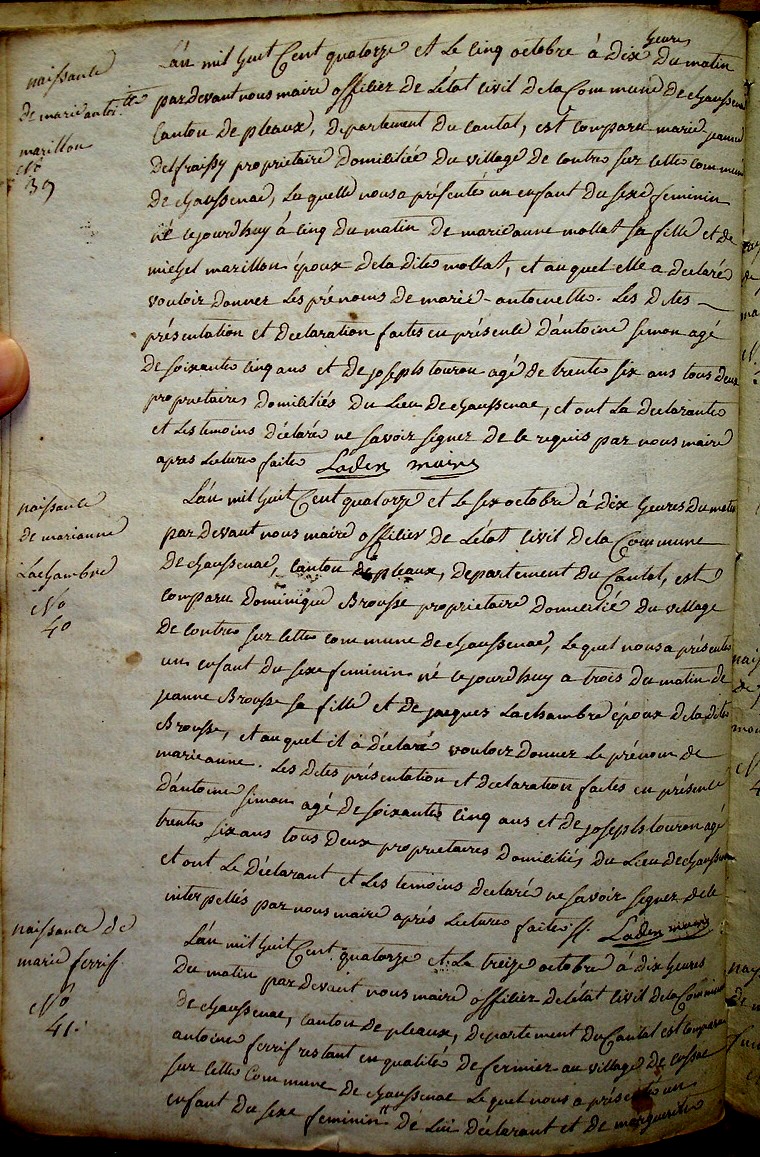 naissance
de marie antoi.tte
marillon
No
39
L'an mil huit Cent quatorze et Le cinq octobre à dix heures du matin
pardevant nous maire officier de L'état civil de la Commune de chaussenac
Canton de pleaux, departement du cantal, est comparu marie-jeanne
Delfraissy proprietaire domiciliée du village de contres sur cette commune
de chaussenac, Laquelle nous a présenté un enfant du sexe feminin
né cejourdhuy à cinq du matin de marieanne mollat sa fille et de
michel marillon époux de la dite mollat, et auquel elle a declaré
vouloir donner Les prénoms de marie-antoinette. Les dites
présentation et declaration faites en présence d'antoine simon agé
de soixante cinq ans et de joseph touron agé de trente six ans tous deux
proprietaires domiciliés du Lieu de chaussenac, et ont La declarante
et Les temoins déclaré ne savoir signer de ce requis par nous maire
apres Lecture faite Laden maire
naissance
de marianne
Lachambre
No
40
L'an mil huit Cent quatorze et le six octobre à dix heures du matin
pardevant nous maire officier de L'état civil de la Commune
de chaussenac, canton de pleaux, departement du Cantal, est
comparu Dominique Brousse proprietaire domicilié du village
de contres sur cette commune de chaussenac, Lequel nous a présenté
un enfant du sexe feminin né cejourdhuy a trois du matin de
jeanne Brousse sa fille et de jacques Lachambre époux de la dite
Brousse, et auquel il à déclaré vouloir donner Le prénom de
marieanne. Les dites présentation et declaration faites en présence
d'antoine simon agé de soixante cinq ans et de joseph touron agé
trente six ans tous deux proprietaires domiciliés du Lieu de chaussenac
et ont Le déclarant et Les temoins declaré ne savoir signer de ce
interpellés par nous maire aprés Lecture faite ff. Laden maire
naissance de
marie ferrif.
No
41.
L'an mil huit Cent quatorze et Le treize octobre à dix heures
du matin pardevant nous maire officier de létat civil de la Commune
de chaussenac, canton de pleaux, departement du Cantal est comparu
antoine ferrif restant en qualité de fermier au village de cussac
sur cette commune de chaussenac Lequel nous a présenté un
enfant du sexe feminin de Lui déclarant et de marguerite